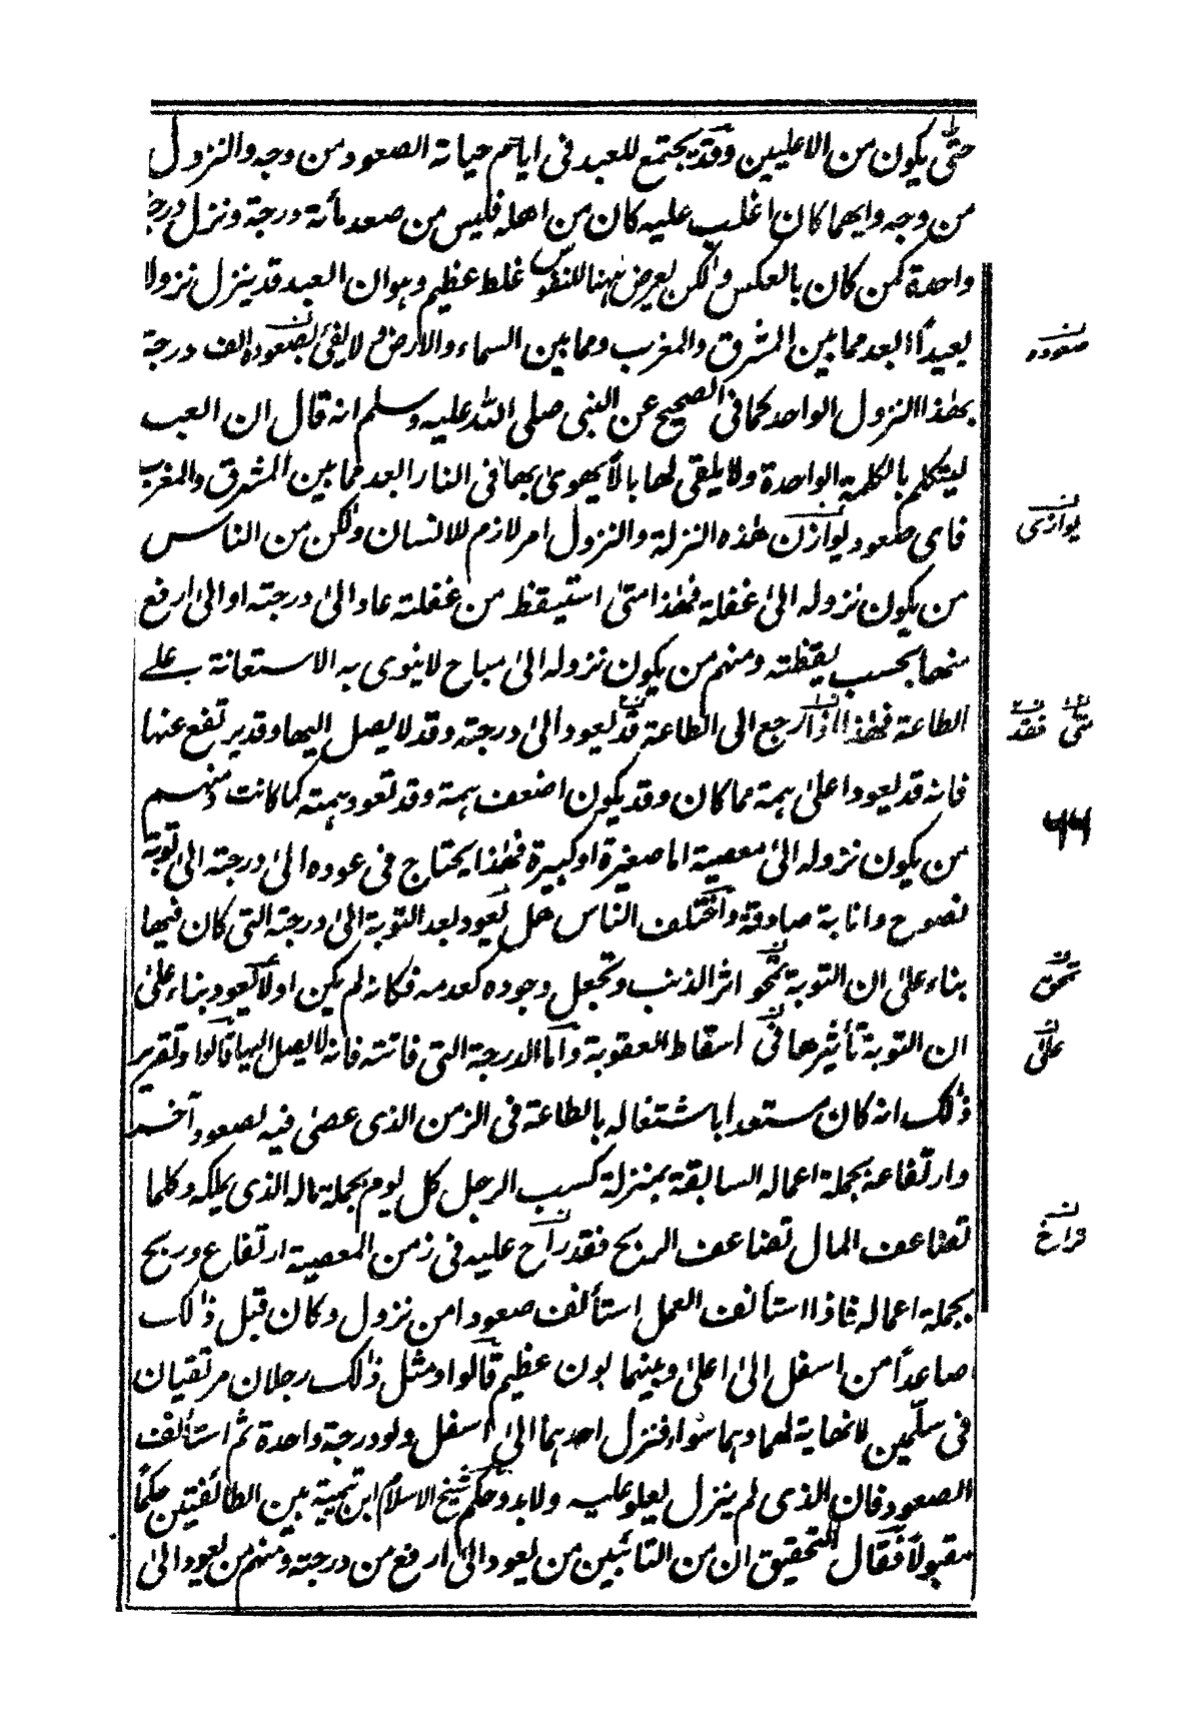 حتى يكون من الاعليين وقد يجتمع للعبد فى ايام حياته الصعود من وجه والنزول
من وجه وايهما كان اغلب عليه كان من اهله فليس من صعد مأئة درجة ونزل درجة
واحدة كمن كان بالعكس ولكن يعرض ههنا للنفوس غلط عظيم وهو ان العبد قد ينزل نزولا
بعيداً ابعد مما بين المشرق والمغرب ومما بين السماء والارض فلا يفى بصعوده الف درجة
بهذا النزول الواحد كما فى الصحيح عن النبى صلى الله عليه وسلم انه قال ان العبد
ليتكلم بالكلمة الواحدة ولا يلقى لها بالا يهوى بها فى النار ابعد مما بين المشرق والمغرب
فاى صعود يوازن هذه النزلة والنزول امر لازم للانسان ولكن من الناس
من يكون نزوله الى غفلة فهذا متى استيقظ من غفلته عاد الى درجته او الى ارفع
منها بحسب يقظته ومنهم من يكون نزوله الى مباح لا ينوى به الاستعانة على
الطاعة فهذا اذا رجع الى الطاعة قد يعود الى درجته وقد لا يصل اليها وقد يرتفع عنها
فانه قد يعود اعلى همة مما كان وقد يكون اضعف همة وقد تعود همته كما كانت ومنهم
من يكون نزوله الى معصية اما صغيرة او كبيرة فهذا يحتاج فى عوده الى درجته الى توبة
نصوح وانابة صادقة واختلف الناس هل يعود بعد التوبة الى درجته التى كان فيها
بناء على ان التوبة تمحو اثر الذنب وتجعل وجوده كعدمه فكانه لم يكن اولا يعود بناء على
ان التوبة تأثيرها فى اسقاط العقوبة واما الدرجة التى فاتته فانه لا يصل اليها قالوا وتقرير
ذلك انه كان مستعدا باشتغاله بالطاعة فى الزمن الذى عصى فيه لصعود آخر
وارتفاعه بجملة اعماله السابقة بمنزلة كسب الرجل كل يوم بجملة ماله الذى يملكه وكلما
تضاعف المال تضاعف الربح فقد راح عليه فى زمن المعصية ارتفاع وربح
بجملة اعماله فاذا استأنف العمل استأنف صعودا من نزول وكان قبل ذلك
صاعداً من اسفل الى اعلى وبينهما بون عظيم قالوا ومثل ذلك رجلان مرتقيان
فى سلمين لا نهاية لهما وهما سواء فنزل احدهما الى اسفل ولو درجة واحدة ثم استأنف
الصعود فان الذى لم ينزل يعلو عليه ولا بد وحكم شيخ الاسلام ابن تيمية بين الطائفتين حكماً
مقبولاً فقال التحقيق ان من التائبين من يعود الى ارفع من درجته ومنهم من يعود الى
صعوده
يوازى
متى فقد
٦٦
على